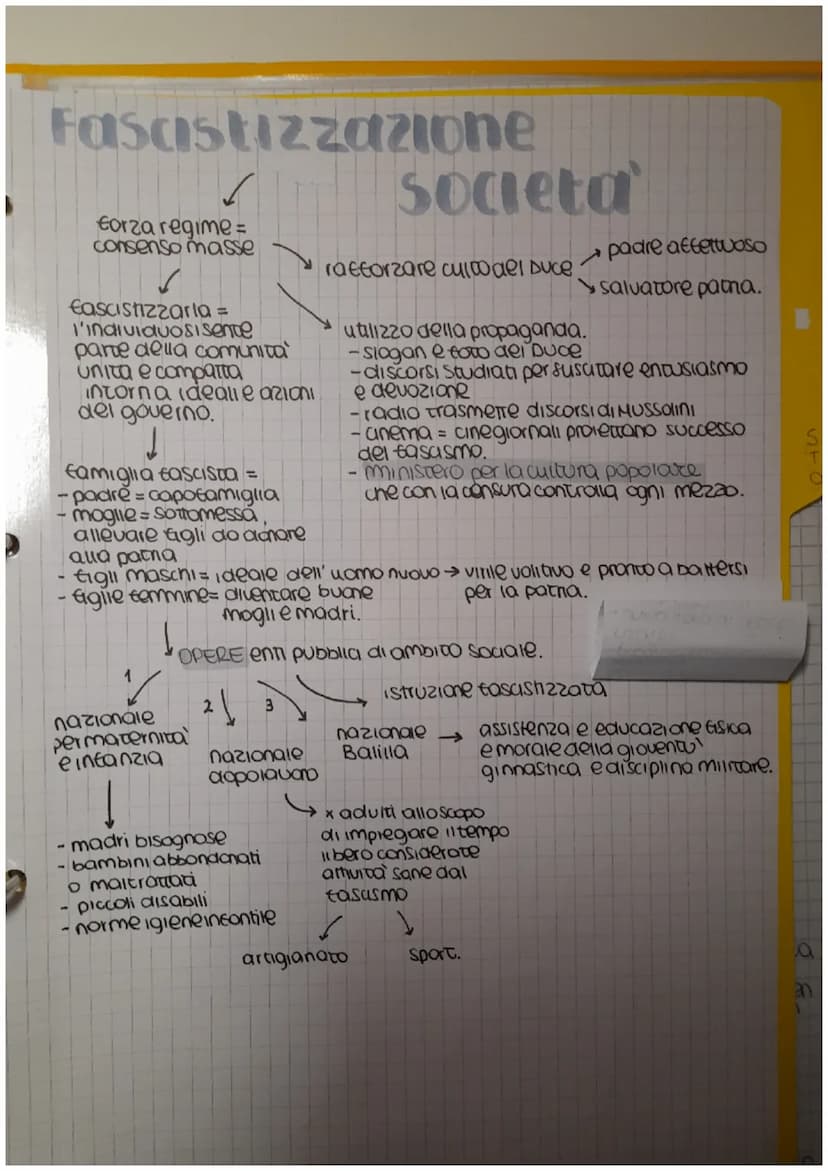 Fascistizzazione
società
forza regime =
consenso masse
rafforzare culto del Duce
padre affettuoso
salvatore patria.
fascistizzarla =
l'individuo si sente
parte della comunità
unita e compatta
intorna ideali e azioni
del governo.
utilizzo della propaganda.
- slogan e foto del Duce
- discorsi studiati per suscitare entusiasmo
e devozione
- radio trasmette discorsi di Mussolini
- cinema = cinegiornali proiettano successo
del fascismo.
- ministero per la cultura popolare
che con la censura controlla ogni mezzo.
famiglia fascista =
- padre = capofamiglia
- moglie = sottomessa,
allevare figli da donare
alla patria
- figli maschi = ideale dell'uomo nuovo → virile volitivo e pronto a battersi
per la patria.
- figlie femmine = diventare buone
mogli e madri.
OPERE enti pubblici di ambito sociale.
1
2
3
istruzione fascistizzata
nazionale
per maternità
e infanzia
nazionale
dopolavoro
nazionale
Balilla
→ assistenza e educazione fisica
e morale della gioventù
ginnastica e disciplina militare.
- madri bisognose
- bambini abbondonati
o maltrattati
- piccoli disabili
- norme igiene infantile
x adulti allo scopo
di impiegare il tempo
libero considerate
attività sane dal
fascismo
artigianato
sport.
S
T
O